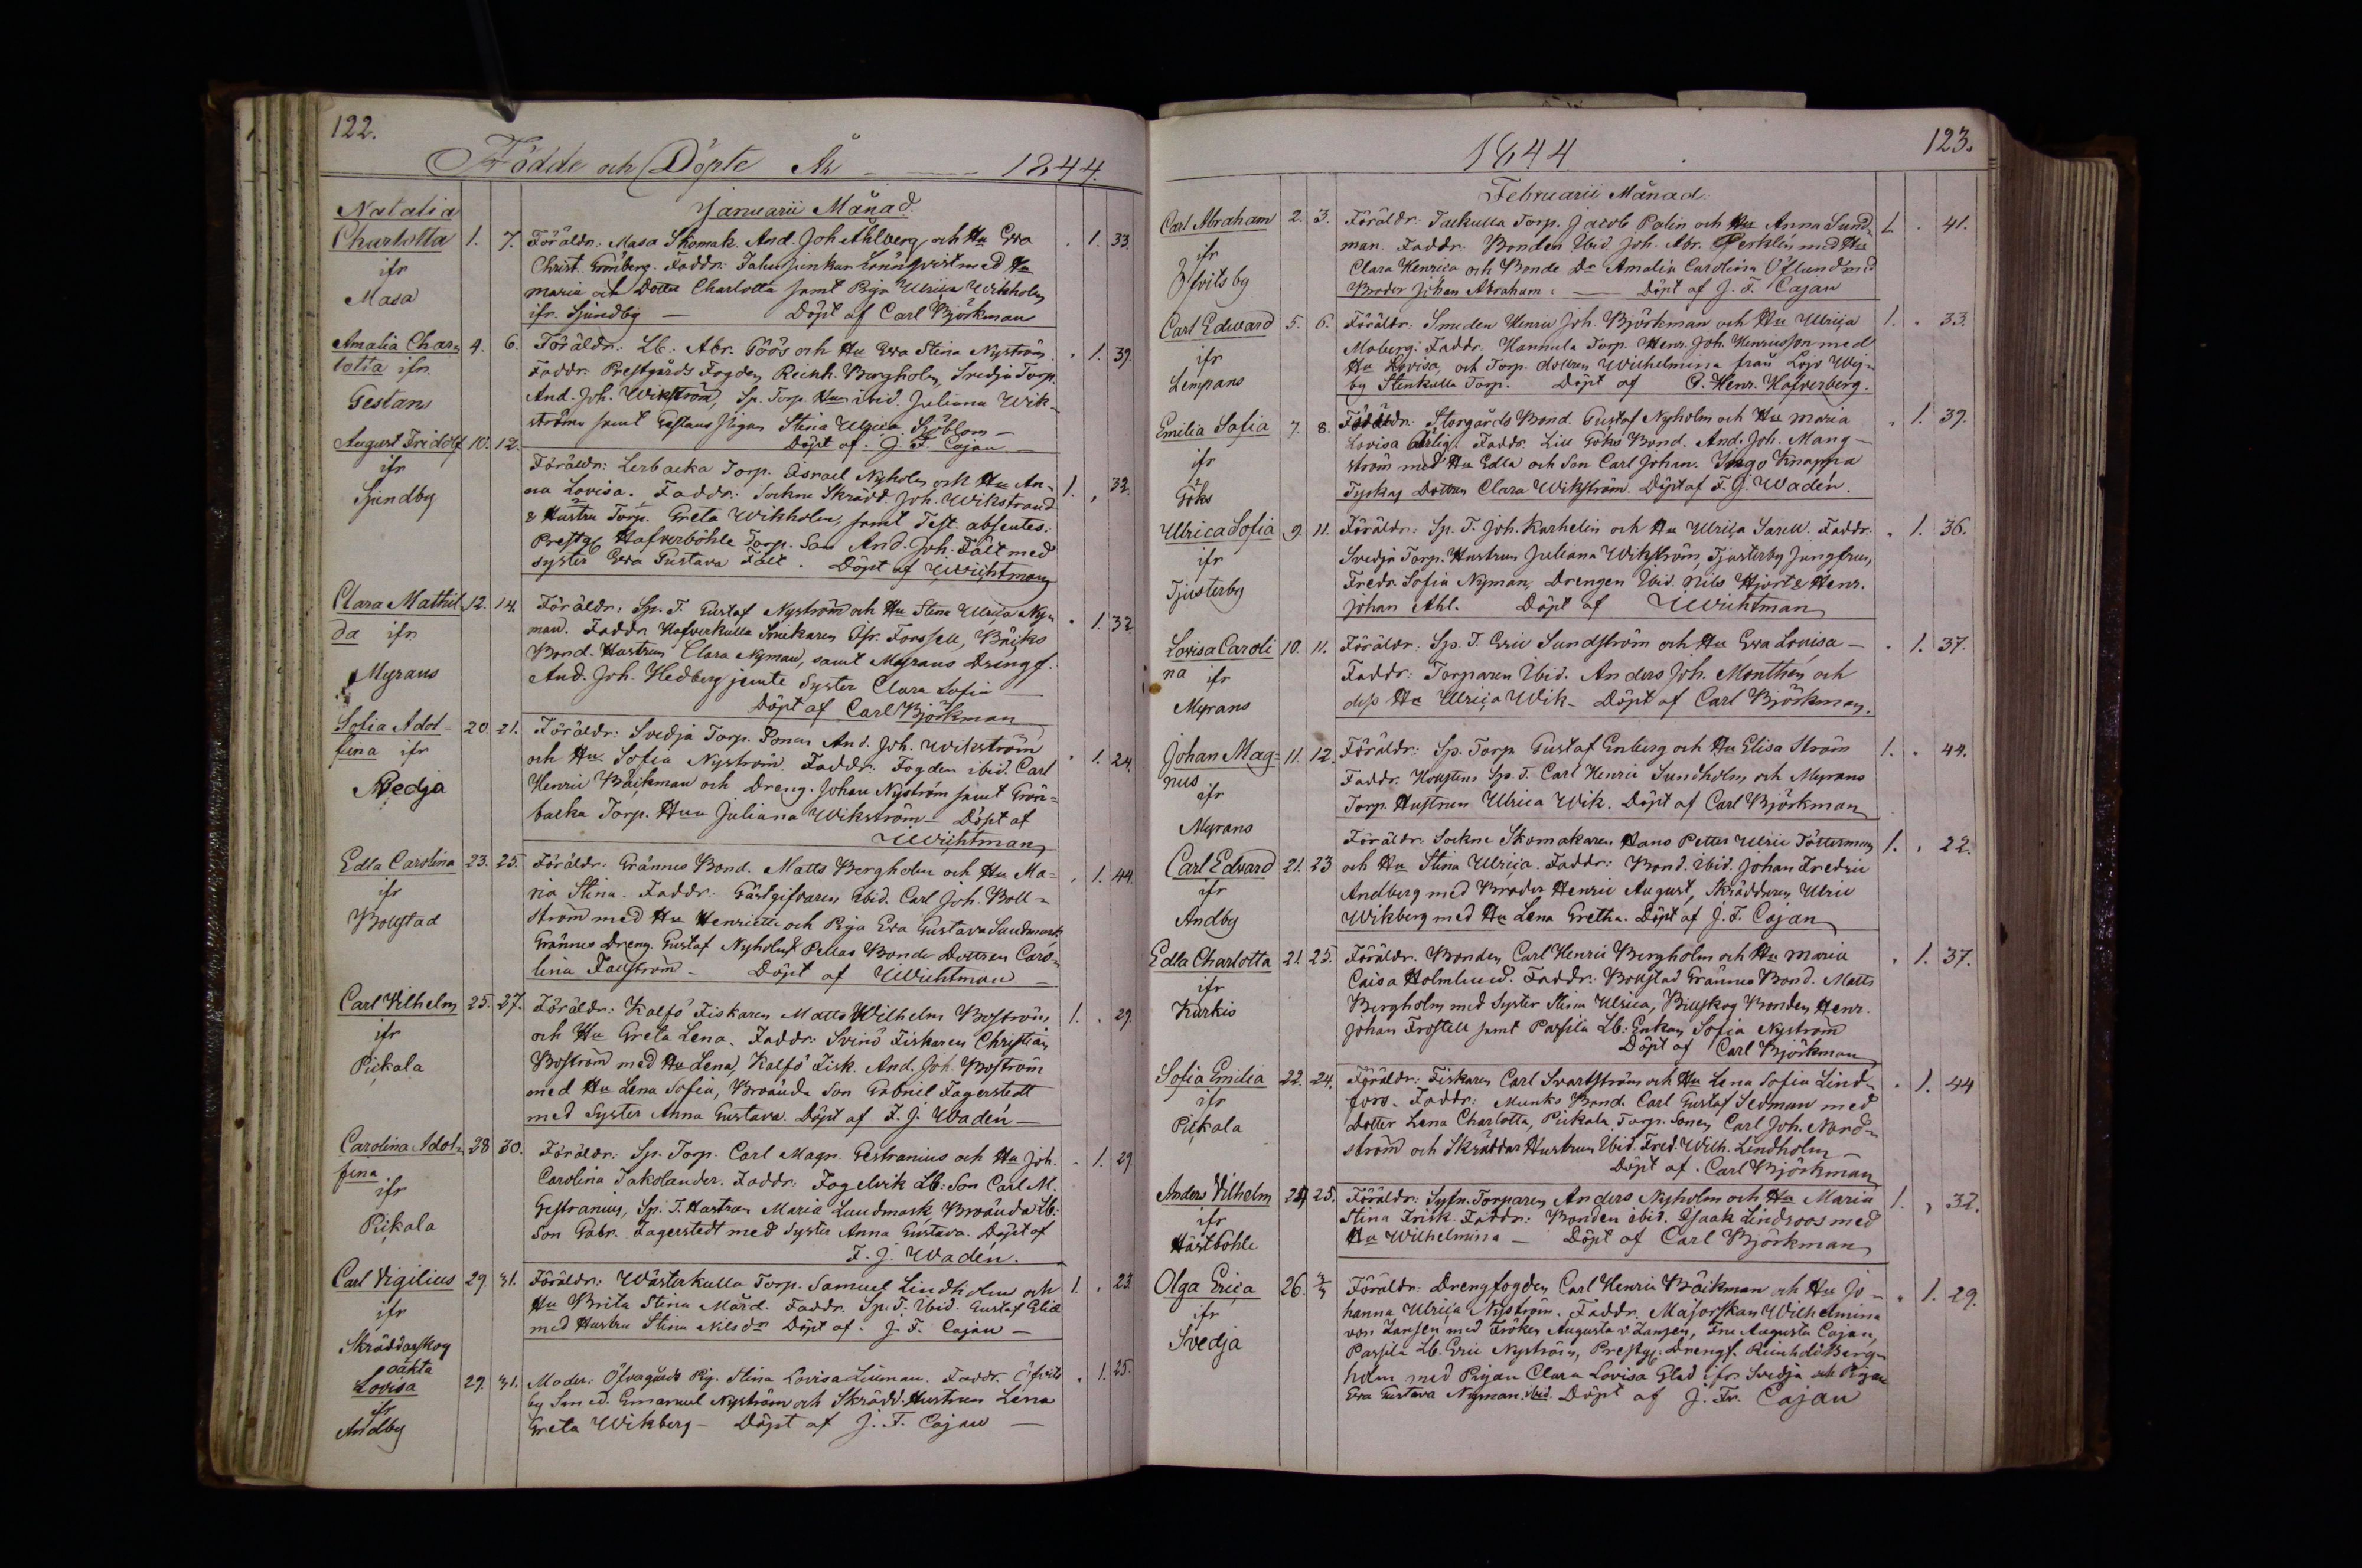 122.
Födde och Döpte År 1844.
Januarii Månad.
Natalia
Charlotta 1. 7. Föräldr: Masa Skomak. And. Joh Ahlberg och Hu Eva . 1. 33.
ifr Christ. Grönberg. Faddr: med Hu
Masa Maria och Dotter Charlotta samt Piga Ulrica Wikholm
ifr. Sjundby — Döpt af Carl Björkman
Amalia Char= 4. 6. Föräldr: Lb: Abr. Göös och Hu Eva Stina Nyström . 1. 39.
lotta ifr. Faddr: Prestgårds Fogden Reinh. Bergholm, Svedja Torp.
Gestans And. Joh. Wikström, Sp. Torp. Hu ibid. Juliana Wik-
ström samt Gestans Pigan Stina Ulrica Sjöblom —
Döpt af J. F. Cajan —
August Fridolf 10. 12. Föräldr: Lerbacka Torp. Israel Nyholm och Hu An- 1. . 32.
ifr na Lovisa. Faddr: Sockne Skrädd. Joh. Wikstrand
Sjundby & Hustru Torp. Greta Wikholm, samt Test. absentes:
Prestg. Hafverböhle Torp. Son And. Joh. Fält med
Syster Eva Gustava Fält. Döpt af Wichtman
Clara Mathil 12. 14. Föräldr: Sp. T. Gustaf Nyström och Hu Stina Ulrica Ny= . 1. 32.
da ifr man. Faddr Hafverkulla Snickaren Forssell, Bäcks
Myrans Bond. Hustrun Clara Nyman, samt Myrans Drengf.
And. Joh. Hedberg jemte Syster Clara Sofia —
Döpt af Carl Björkman
Sofia Adol- 20. 21. Föräldr: Svedja Torp. Sonen And. Joh. Wikström . 1. 24.
fina ifr och Hu Sofia Nyström. Faddr: Fogden ibid. Carl
Svedja Henric Bäckman och Dreng. Johan Nyström samt Grön=
backa Torp. Hun Juliana Wikström — Döpt af
Wichtman
Edla Carolina 23. 25. Föräldr: Grännus Bond. Matts Bergholm och Hu Ma= . 1. 44.
ifr ria Stina. Faddr: Gästgifvaren ibid. Carl Joh. Boll=
Bollstad ström med Hu Henriette och Piga Eva Gustava Sundmark
Grännus Dreng. Gustaf Nyholm & Pellas Bonde Dottren Caro=
lina Fallström — Döpt af Wichtman —
Carl Vilhelm 25. 27. Föräldr: Kalfö Fiskaren Matts Wilhelm Boström 1. . 29.
ifr och Hu Greta Lena. Faddr: Svinö Fiskaren Christian
Pickala Boström med Hu Lena, Kalfö Fisk. And. Joh. Boström
med Hu Lena Sofia, Broända Son Gabriel Fagerstedt
med Syster Anna Gustava. Döpt af F. J. Wadén —
Carolina Adol- 28 30. Föräldr: Sp. Torp. Carl Magn. Gestranius och Hu Joh. . 1. 29.
fina Carolina Jakolander. Faddr: Fagelvik Lb: Son Carl M.
ifr Gestranius, Sp. T. Hustrun Maria Lundmark Broända Lb:
Pickala Son Gabr. Fagerstedt med Syster Anna Gustava. Döpt af
F. J. Wadén.
Carl Vigilius 29. 31. Föräldr: Wästerkulla Torp. Samuel Lindholm och 1. . 23.
ifr Hu Brita Stina Mård. Faddr. Sp. T. ibid. Gustaf Glid
Skräddarskog med Hustru Stina Nilsdr Döpt af J. F. Cajan —
oäkta
Lovisa 29. 31. Moder: Öfvergårds Pig. Stina Lovisa Liiman. Faddr. Öfvits . 1. 25.
ifr by Smed. Emanuel Nyström och Skrädd. Hustrun Lena
Andby Greta Wikberg — Döpt af J. F. Cajan —
123.
1844
Februarii Månad.
Carl Abraham 2. 3. Föräldr: Torp. Jacob Palin och Hu Anna Sund= 1. . 41.
ifr man. Faddr: Bonden ibid. Joh. Abr. med Hu
Öfvitsby Clara Henrica och Bonde Dr Amalia Carolina Öflund med
Broder Johan Abraham. — Döpt af J. F. Cajan
Carl Edward 5. 6. Föräldr: Smeden Henric Joh. Björkman och Hu Ulrica 1. . 33.
ifr Moberg. Faddr. Hannula Torp. Henr. Joh. Henricsson med
Lempans Hu Lovisa, och Torp. dottren Wilhelmina från Lojo Wij=
by Stenkulla Torp. Döpt af G. Henr. Hafverberg.
Emilia Sofia 7. 8. Föräldr: Storgårds Bond. Gustaf Nyholm och Hu Maria . 1. 39.
ifr Lovisa Ärlig. Faddr. Lill Göks Bond. And. Joh. Mang-
L. ström med Hu Edla och Son Carl Johan. Ingo Knappa
Göks Dottren Clara Wikström. Döpt af F. J. Wadén.
Ulrica Sofia 9. 11. Föräldr: Sp. T. Joh. Karhelin och Hu Ulrica Saxell. Faddr: . 1. 36.
ifr Svedja Torp. Hustrun Juliana Wikström, Tjusterby Jungfrun
Tjusterby Fredr. Sofia Nyman, Drengen ibid. Nils Hjort & Henr.
Johan Ahl. Döpt af Wichtman
Lovisa Caroli 10. 11. Föräldr: Sp. T. Eric Sundström och Hu Eva Lovisa — . 1. 37.
na ifr Faddr: Torparen ibid. Anders Joh. Monthén och
Myrans dess Hu Ulrica Wik — Döpt af Carl Björkman.
Johan Mag= 11. 12. Föräldr: Sp. Torp. Gustaf Enberg och Hu Elisa Ström 1. . 44.
nus ifr Faddr. Sp. T. Carl Henric Sundholm och Myrans
Myrans Torp. Hustrun Ulrica Wik. Döpt af Carl Björkman
Föräldr: Sockne Skomakaren Hans Petter Ulric Tötterman 1. . 22.
Carl Edvard 21. 23 och Hu Stina Ulrica. Faddr: Bond. ibid. Johan Fredric
ifr Andberg med Broder Henric August, Skräddaren Ulric
Andby Wikberg med Hu Lena Gretha. Döpt af J. F. Cajan
Edla Charlotta 21. 25. Föräldr: Bonden Carl Henric Bergholm och Hu Maria . 1. 37.
ifr Caisa Holmlund. Faddr: Bollstad Grännus Bond. Matts
Kurkis Bergholm med Syster Stina Ulrica, Billskog Bonden Henr.
Johan Frostell samt Passila Lb: Enkan Sofia Nyström
Döpt af Carl Björkman
Sofia Emilia 22. 24. Föräldr: Fiskaren Carl Svartström och Hu Lena Sofia Lind= . 1. 44
ifr fors. Faddr: Munks Bond. Carl Gustaf Sedman med
Pickala Dotter Lena Charlotta, Pickala Torp. Sonen Carl Joh. Nord=
ström och Skräddar Hustrun ibid. Fred. Wilh. Lindholm —
Döpt af Carl Björkman
Anders Vilhelm 24 25. Föräldr: Torparen Anders Nyholm och Hu Maria 1. . 32.
ifr Stina Frisk. Faddr: Bonden ibid. Isaak Lindroos med
Hästböhle Hu Wilhelmina — Döpt af Carl Björkman
Olga Erica 26. 3/3 Föräldr: Drengfogden Carl Henric Bäckman och Hu Jo= . 1. 29.
ifr hanna Ulrica Nyström. Faddr. Majorskan Wilhelmina
Svedja von Jansen med Fröken Augusta v. Jansen, Fru Augusta Cajan,
Passila Lb. Eric Nyström, Prestg. Drengf. Reinhold Berg=
holm med Pigan Clara Lovisa Glad ifr Svedja och Pigan
Eva Gustava Nyman ibid. Döpt af J. Fr. Cajan